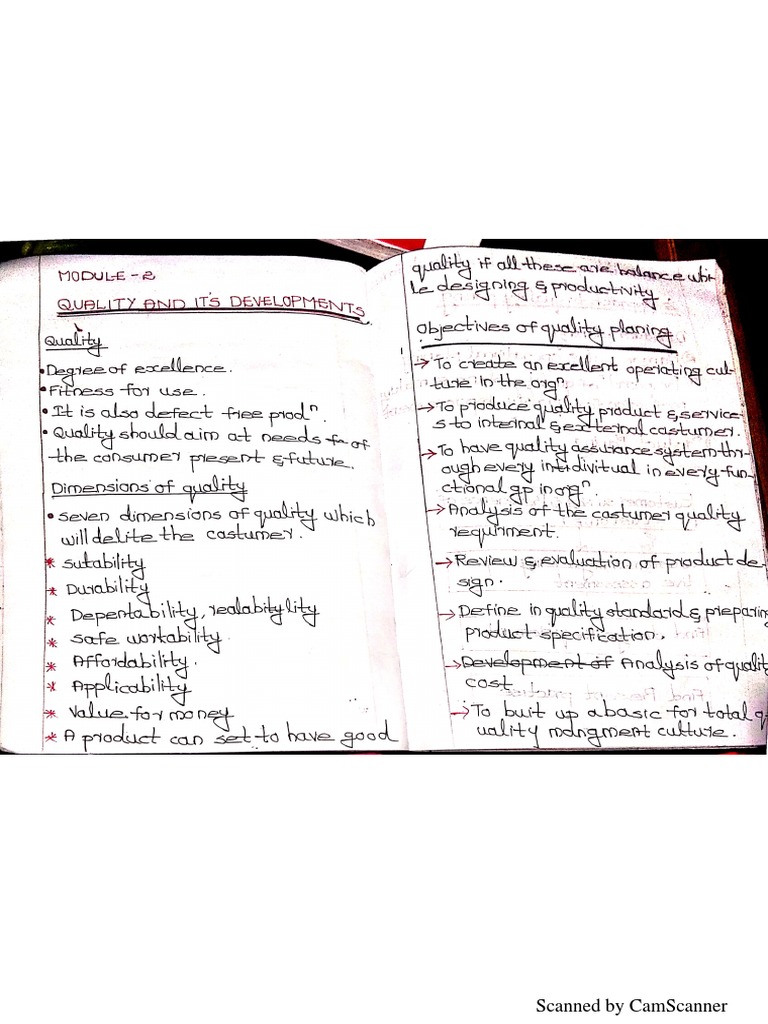 MODULE-2
QUALITY AND IT'S DEVELOPMENTS
Quality
• Degree of excellence.
• Fitness for use.
• It is also defect free prodⁿ.
• Quality should aim at needs of
the consumer present & future.
Dimensions of quality
• seven dimensions of quality which
will delite the costumer.
* sutability
* Durability
* Depentability, realabitylity
* safe workability.
* Affordability.
* Applicability
* Value for money
* A product can set to have good
quality if all these are balance whi-
le designing & productivity.
Objectives of quality planing
→ To create an excellent operating cul-
ture in the orgⁿ.
→ To produce quality product & service-
s to internal & external costumer.
→ To have quality assurance system thr-
ough every intidivitual in every fun-
ctional gp in orgⁿ.
→ Analysis of the costumer quality
requirment.
→ Review & evaluation of product de-
sign.
→ Define in quality standard & preparing
product specification.
→ Development of Analysis of quality
cost
→ To buit up a basic for total q
uality mangment culture.
Scanned by CamScanner